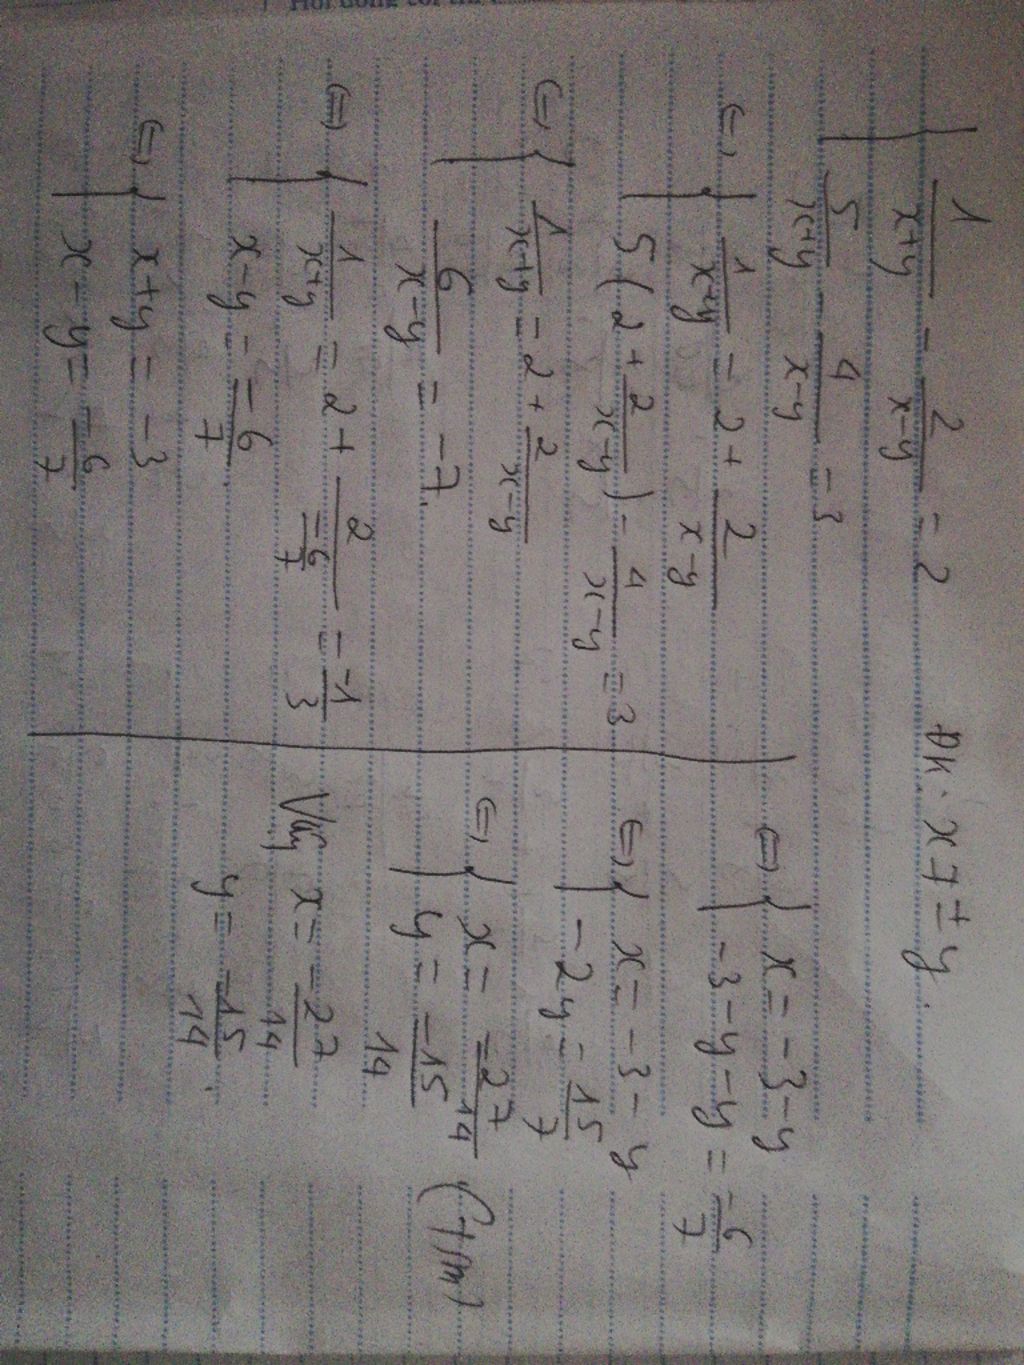 { 1/(x+y) - 2/(x-y) = 2 ĐK: x ≠ ± y.
5/(x+y) - 4/(x-y) = 3
⇔ { 1/(x+y) = 2 + 2/(x-y)
5(2 + 2/(x-y)) - 4/(x-y) = 3
⇔ { 1/(x+y) = 2 + 2/(x-y)
6/(x-y) = -7.
⇔ { 1/(x+y) = 2 + 2/(-6/7) = -1/3
x-y = -6/7
⇔ { x+y = -3
x-y = -6/7
⇔ { x = -3-y
-3-y-y = -6/7
⇔ { x = -3-y
-2y = 15/7
⇔ { x = -27/14 (t/m)
y = -15/14
Vậy x = -27/14
y = -15/14.